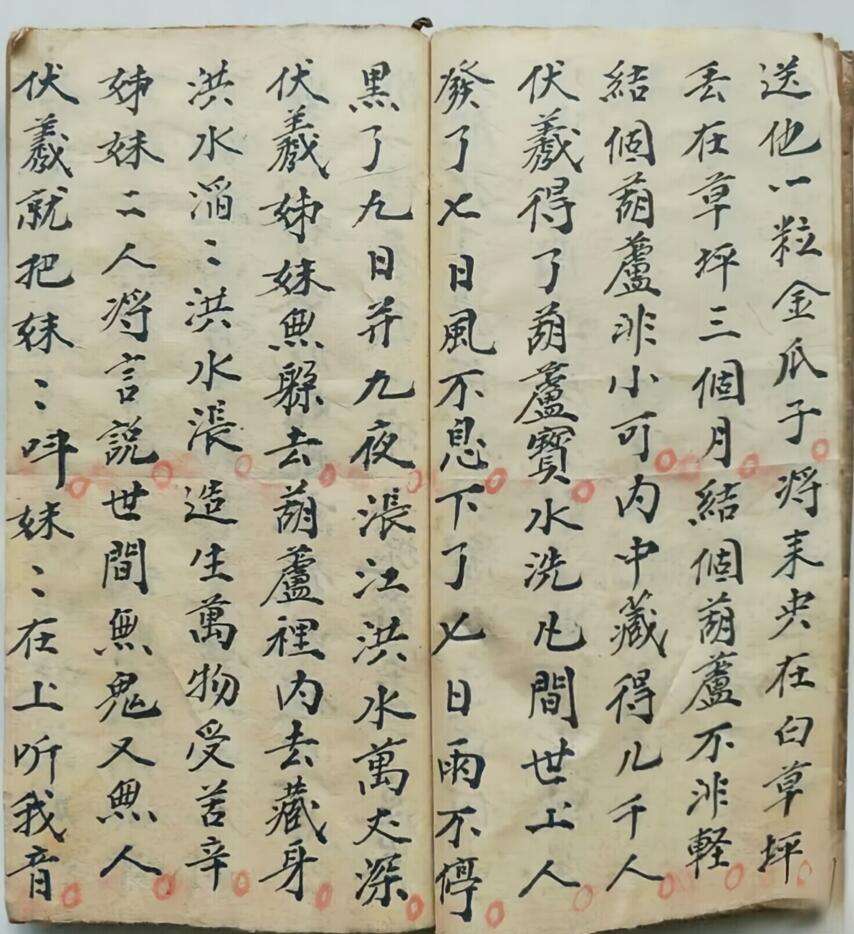 送他一粒金瓜子将来央在白草坪
丢在草坪三個月結個葫蘆不非軽
結個葫蘆非小可内中藏得几千人
伏羲得了葫蘆寳水洗凡間世上人
發了七日風不息下了七日雨不停
黒了九日并九夜漲江洪水萬丈深
伏羲姊妹無躲去葫蘆裡内去藏身
洪水滔〻洪水漲造生萬物受苦辛
姊妹二人将言説世間無鬼又無人
伏羲就把妹〻呌妹〻在上听我音